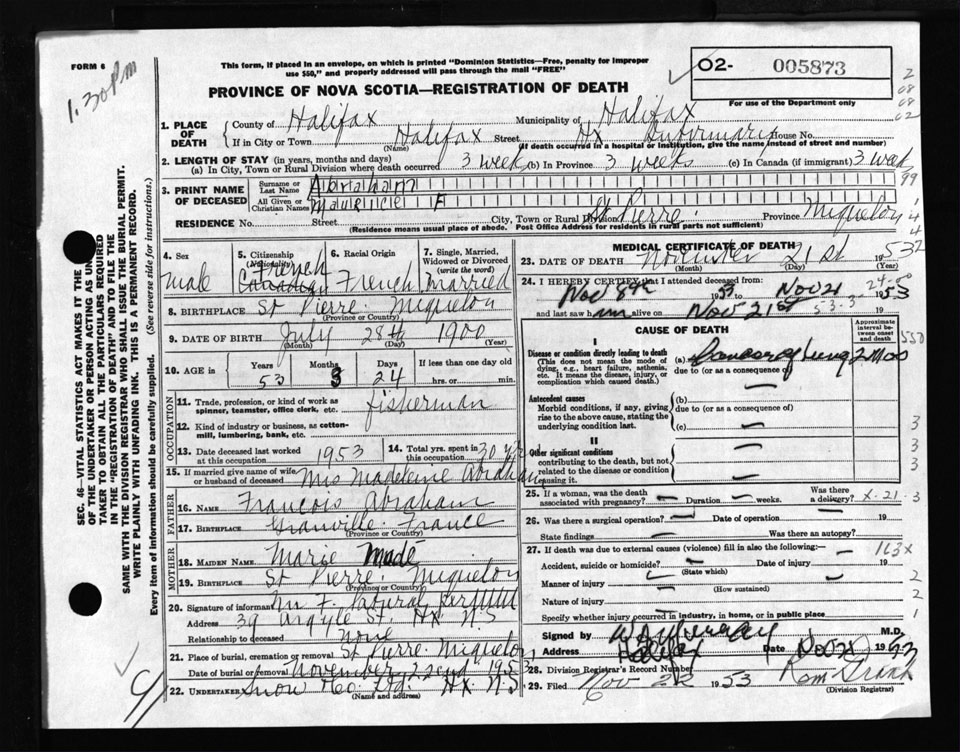 FORM 6
1.30 PM
This form, if placed in an envelope, on which is printed "Dominion Statistics—Free, penalty for improper
use $50," and properly addressed will pass through the mail "FREE"
PROVINCE OF NOVA SCOTIA—REGISTRATION OF DEATH
02- 005873
For use of the Department only
SEC. 46—VITAL STATISTICS ACT MAKES IT THE
OF THE UNDERTAKER OR PERSON ACTING AS UN
TAKER TO OBTAIN ALL THE PARTICULARS REQUIRED
IN THE "REGISTRATION OF DEATH" AND TO FILE THE
SAME WITH THE DIVISION REGISTRAR WHO SHALL ISSUE THE BURIAL PERMIT.
WRITE PLAINLY WITH UNFADING INK. THIS IS A PERMANENT RECORD.
Every item of information should be carefully supplied. (See reverse side for instructions.)
1. PLACE OF DEATH
County of Halifax Municipality of Halifax
If in City or Town Halifax Street Hx Infirmary House No.
(Name) (If death occurred in a hospital or institution, give the name instead of street and number)
2. LENGTH OF STAY (in years, months and days)
(a) In City, Town or Rural Division where death occurred 3 week (b) In Province 3 weeks (c) In Canada (if immigrant) 3 week
3. PRINT NAME OF DECEASED
Surname or Last Name Abraham
All Given or Christian Names Maurice F
RESIDENCE No. Street City, Town or Rural Division St Pierre Province Miquelon
(Residence means usual place of abode. Post Office Address for residents in rural parts not sufficient)
4. Sex male
5. Citizenship (Nationality) French Canadian
6. Racial Origin French
7. Single, Married, Widowed or Divorced (write the word) Married
8. BIRTHPLACE St Pierre Miquelon
(Province or Country)
9. DATE OF BIRTH July 28th 1900
(Month) (Day) (Year)
10. AGE in Years 53 Months 3 Days 24 If less than one day old hrs. or min.
OCCUPATION
11. Trade, profession, or kind of work as spinner, teamster, office clerk, etc. fisherman
12. Kind of industry or business, as cotton-mill, lumbering, bank, etc.
13. Date deceased last worked at this occupation 1953
14. Total yrs. spent in this occupation 30 yr
15. If married give name of wife or husband of deceased Mrs Madeleine Abraham
FATHER
16. NAME Francois Abraham
17. BIRTHPLACE Granville France
(Province or Country)
MOTHER
18. MAIDEN NAME Marie Madé
19. BIRTHPLACE St Pierre Miquelon
(Province or Country)
20. Signature of informant
Address 39 Argyle St. Hx N.S
Relationship to deceased None
21. Place of burial, cremation or removal St Pierre Miquelon
Date of burial or removal November 22nd 1953
22. UNDERTAKER Snow Co. Ltd. Hx N.S
(Name and address)
MEDICAL CERTIFICATE OF DEATH
23. DATE OF DEATH November 21st 1953
(Month) (Day) (Year)
24. I HEREBY CERTIFY that I attended deceased from:
Nov 8th 1953 to Nov 21 1953
and last saw him alive on Nov 21st
CAUSE OF DEATH
Approximate interval between onset and death
I
Disease or condition directly leading to death
(This does not mean the mode of dying, e.g., heart failure, asthenia, etc. It means the disease, injury, or complication which caused death.)
(a) Cancer of Lung 2 Mos
due to (or as a consequence of)
Antecedent causes
Morbid conditions, if any, giving rise to the above cause, stating the underlying condition last.
(b)
due to (or as a consequence of)
(c)
II
Other significant conditions
contributing to the death, but not related to the disease or condition causing it.
25. If a woman, was the death associated with pregnancy? Duration weeks. Was there a delivery?
26. Was there a surgical operation? Date of operation 19
State findings Was there an autopsy?
27. If death was due to external causes (violence) fill in also the following:—
Accident, suicide or homicide? Date of injury 19
(State which)
Manner of injury
(How sustained)
Nature of injury
Specify whether injury occurred in industry, in home, or in public place
Signed by M.D.
Address Halifax Date Nov 21 1953
28. Division Registrar's Record Number
29. Filed Nov 22 1953
(Division Registrar)